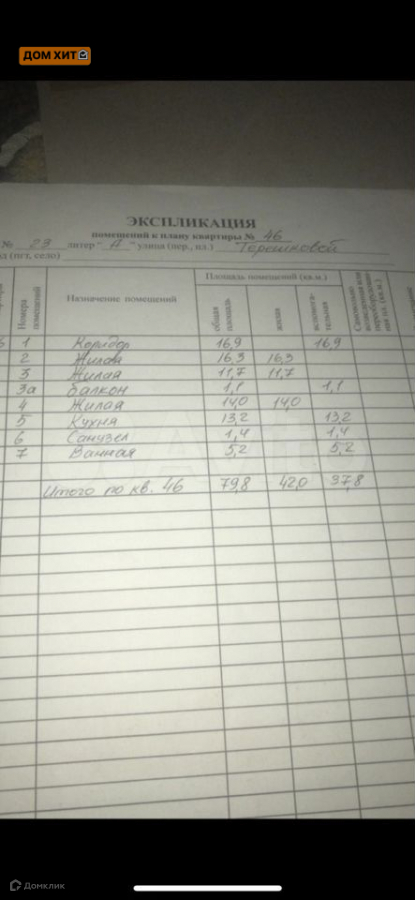 ДОМ ХИТ
ЭКСПЛИКАЦИЯ
помещений к плану квартиры № 46
№ 23 литер "А" улица (пер., пл.) Терешковой
д (пгт, село)
Номера помещений
Назначение помещений
Площадь помещений (кв.м.)
общая площадь
жилая
вспомога-тельная
1 Коридор 16,9 16,9
2 Жилая 16,3 16,3
3 Жилая 11,7 11,7
3а Балкон 1,1 1,1
4 Жилая 14,0 14,0
5 Кухня 13,2 13,2
6 Санузел 1,4 1,4
7 Ванная 5,2 5,2
Итого по кв. 46 79,8 42,0 37,8
Домклик